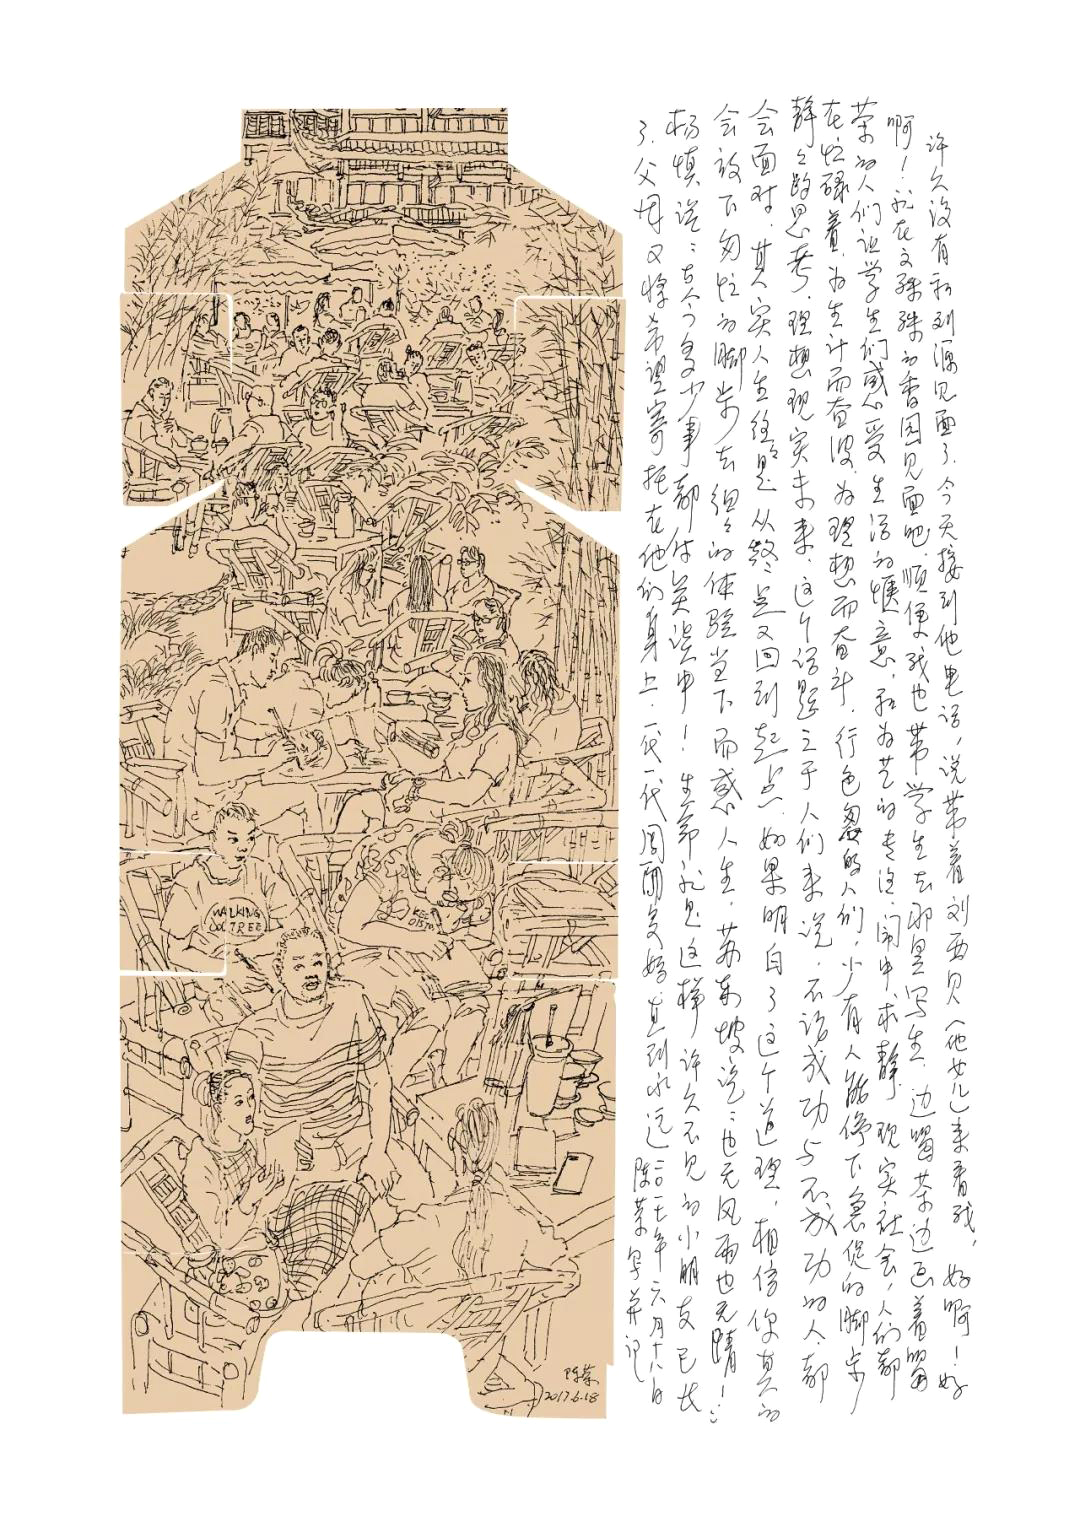 许久没有和刘源见面了.今天接到他电话,说带着刘西贝(他女儿)来看我,好啊!好
啊!就在文殊殊的香园见面吧.顺便我也带学生去那里写生.边喝茶边画着喝
茶的人们让学生们感受生活的惬意,和为艺的专注.闹中求静.现实社会,人们都
在忙碌着.为生计而奔波.为理想而奋斗.行色匆匆的人们,少有人能停下急促的脚步
静静的思考.理想现实未来.这个话题之于人们来说.不论成功与不成功的人.都
会面对.其实人生往往是从终点又回到起点.如果明白了这个道理,相信你真的
会放下匆忙的脚步去细细的体验当下而感人生.苏东坡说:也无风雨也无晴!
杨慎说:古今多少事都付笑谈中!生命就是这样许久不见的小朋友已长
了.父母又将希望寄托在他们身上.一代一代周而复始.直到永远二〇一七年六月十八日
陈荣写并记
WALKING
TREE
陈荣
2017.6.18